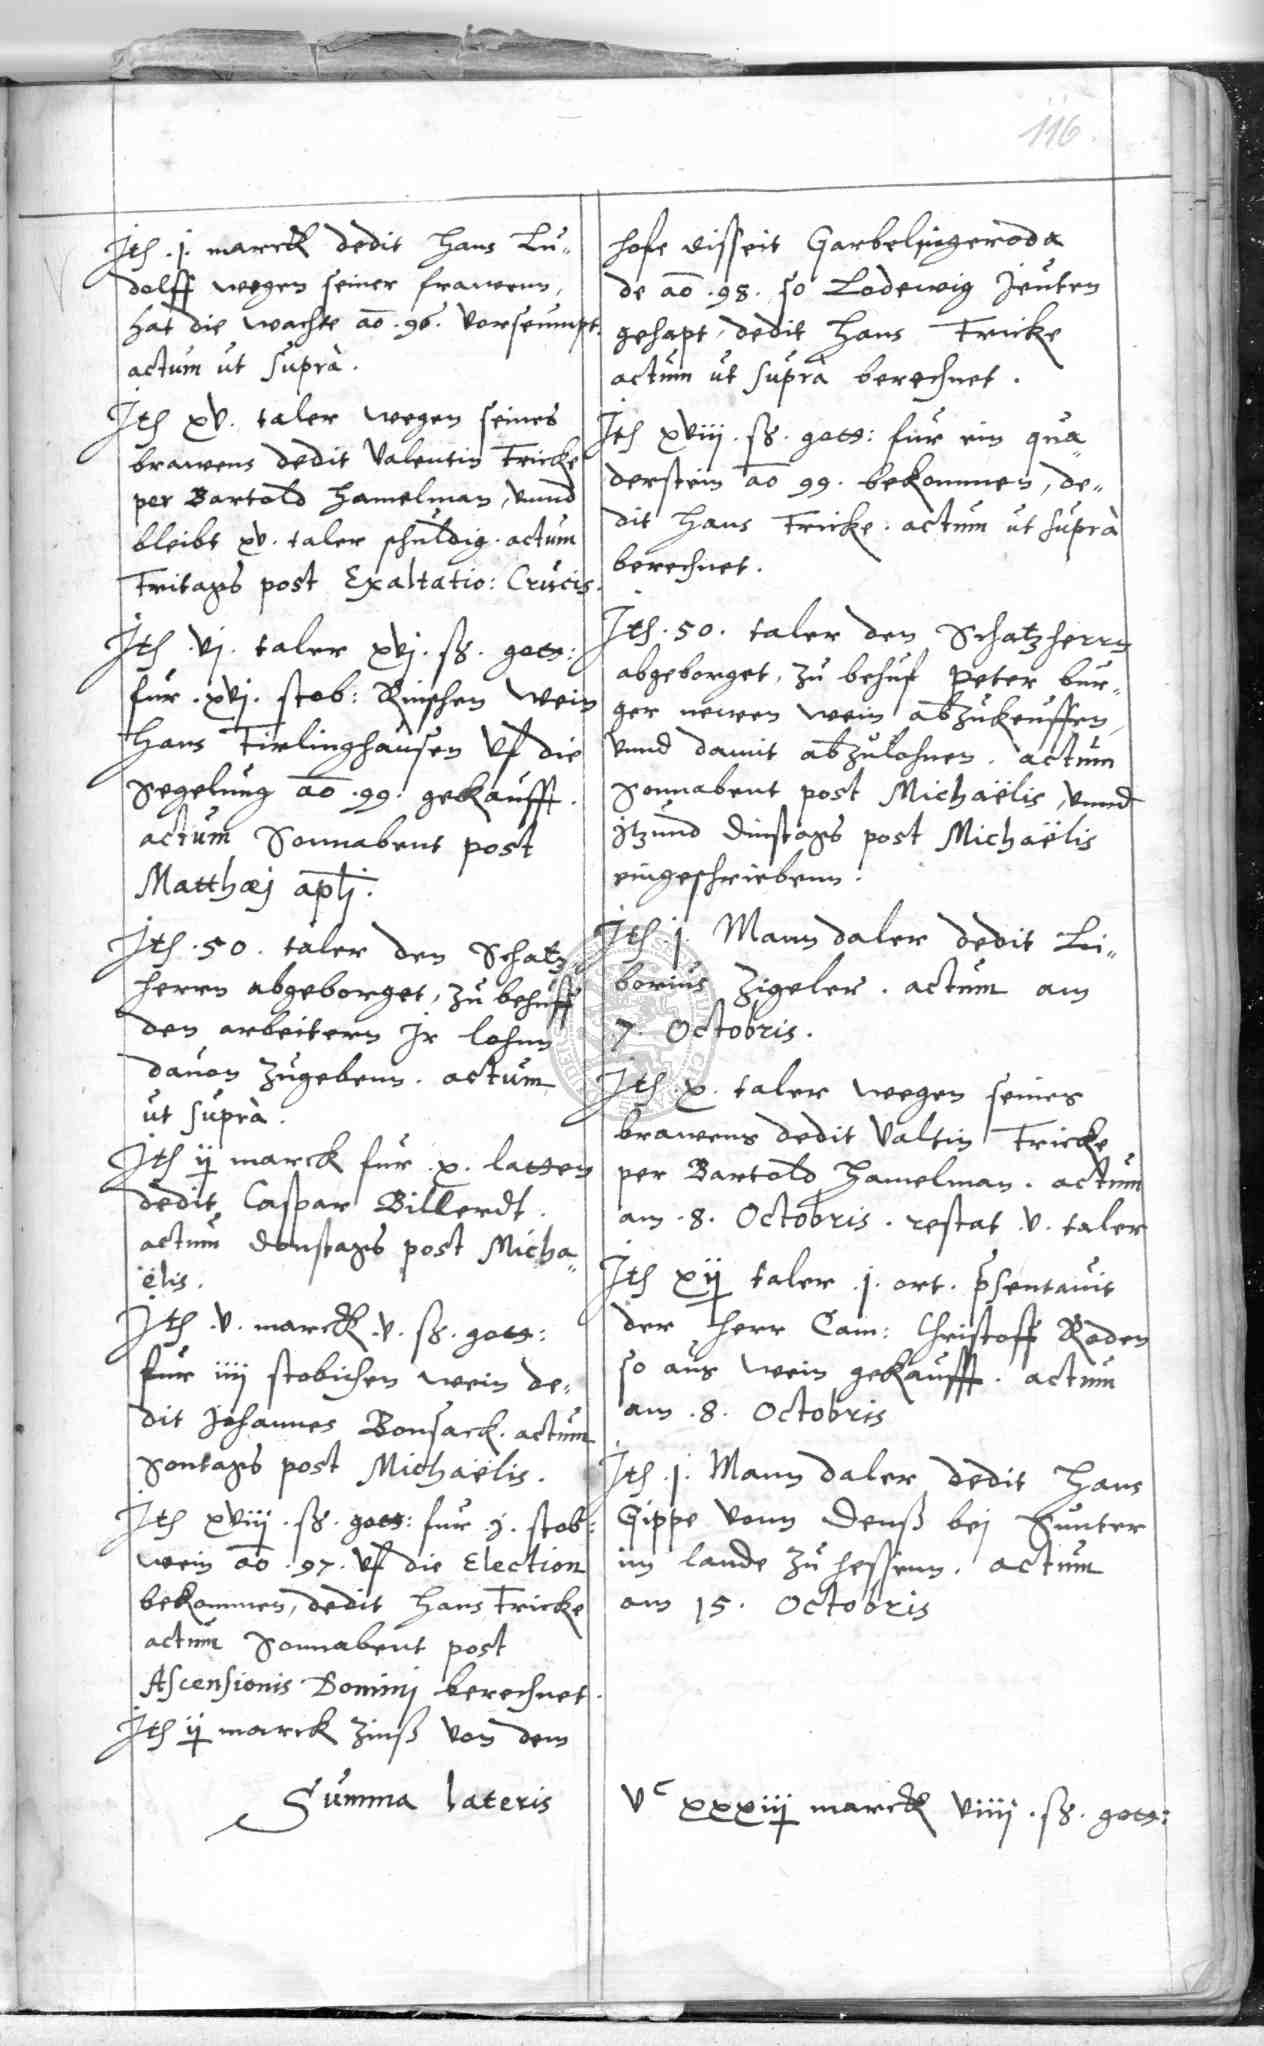 116.
Jtē .j. marck dedit Hans Lu„
dolff wegen seiner frawenn,
hat die wachte ao .96. vorseumpt.
actum ut suprà.
Jtē xv. taler wegen seines
brawens dedit Valentin Fricke
per Bartold Hamelman, vnnd
bleibt xv. taler schuldig. actum
Fritags post Exaltatio: Crucis.
Jtē .vj. taler xvj. ß. gott:
fur .xvj. stob: Rinschen wein
Hans Tirlinghausen vf die
Segelung ao .99. gekaufft.
actum Sonnabent post
Matthæj aptj.
Jtē .50. taler den Schatz„
herrn abgeborget, zu behuff
den arbeitern jr lohnn
dauon zugebenn. actum
ut suprà.
Jtē ij marck fur .x. latten
dedit Caspar Billerdt.
actum Donstags post Micha„
ëlis.
Jtē .v. marck .v. ß. gott:
fur iiij stobichen wein de„
dit Johannes Bonsack. actum
Sontags post Michaëlis.
Jtē xviij. ß. gott: fur .j. stob:
wein ao .97. vf die Election
bekommen, dedit Hans Fricke
actum Sonnabent post
Ascensionis Dominj berechnet.
Jtē ij marck zinß von dem
Summa lateris
hofe disseit Garbelingeroda
de ao .98. so Lodewig Jeuten
gehapt, dedit Hans Fricke
actum ut suprà berechnet.
Jtē xviij. ß. gott: fur ein qua„
derstein ao 99. bekommen, de„
dit Hans Fricke. actum ut suprà
berechnet.
Jtē .50. taler den Schatzherrn
abgeborget, zu behuf Peter bur„
ger newen wein abzukeuffen,
vnnd damit abzulohnen. actum
Sonnabent post Michaëlis, vnnd
itzund Dinstags post Michaëlis
eingeschriebenn.
Jtē .j. Mann daler dedit Li„
borius Zigeler. actum am
7. Octobris.
Jtē .x. taler wegen seines
brawens dedit Valtin Fricke
per Bartold Hamelman. actum
am .8. Octobris. restat .v. taler
Jtē xij taler .j. ort. p̄sentauit
der Herr Cam: Christoff Roden
so aus wein gekaufft. actum
am .8. Octobris
Jtē .j. Mann daler dedit Hans
Gippe vonn Denß bej Sunter
im lande zu hessenn. actum
am 15. Octobris
vᶜ xxxiij marck viiij. ß. gott: